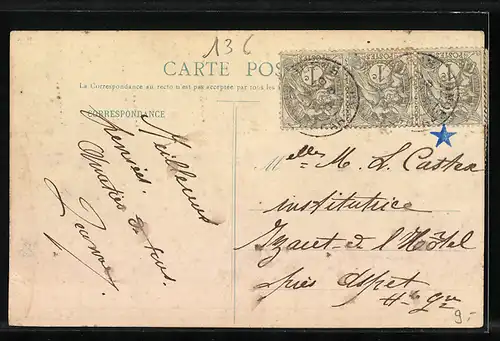 136
CARTE POS
La Correspondance au recto n'est pas acceptée par tous les
CORRESPONDANCE
Meilleures
pensées.
Amitiés à tous.
POSTES
1
POSTES
1
POSTES
1
Melle M. L. Castex
institutrice
Izaut-de l'Hôtel
près Aspet
Hte Gne
9.-